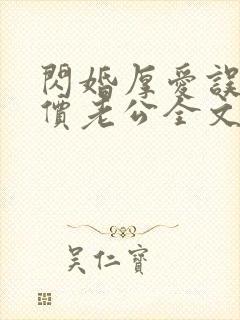 閃婚厚愛誤
價老公全文
吳仁寶